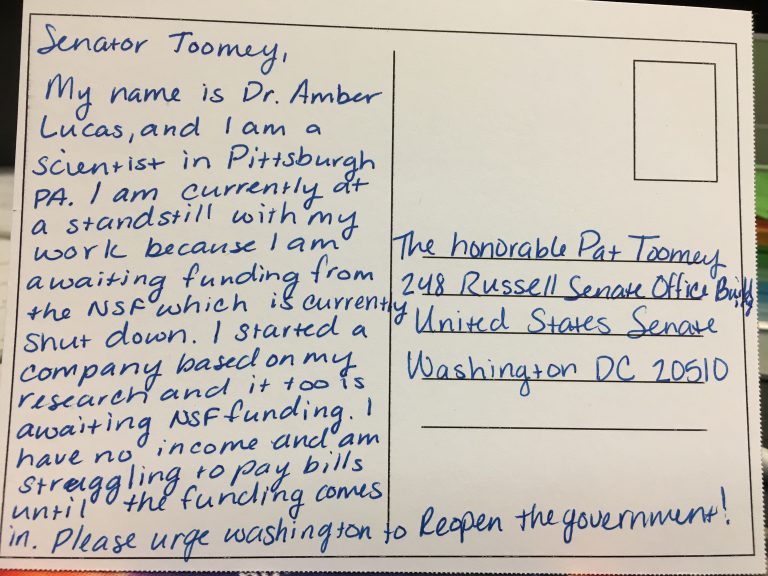 Senator Toomey,
My name is Dr. Amber
Lucas, and I am a
scientist in Pittsburgh
PA. I am currently at
a standstill with my
work because I am
awaiting funding from
the NSF which is currently
shut down. I started a
company based on my
research and it too is
awaiting NSF funding. I
have no income and am
struggling to pay bills
until the funding comes
in. Please urge washington to Reopen the government!
The honorable Pat Toomey
248 Russell Senate Office Buildg
United States Senate
Washington DC 20510